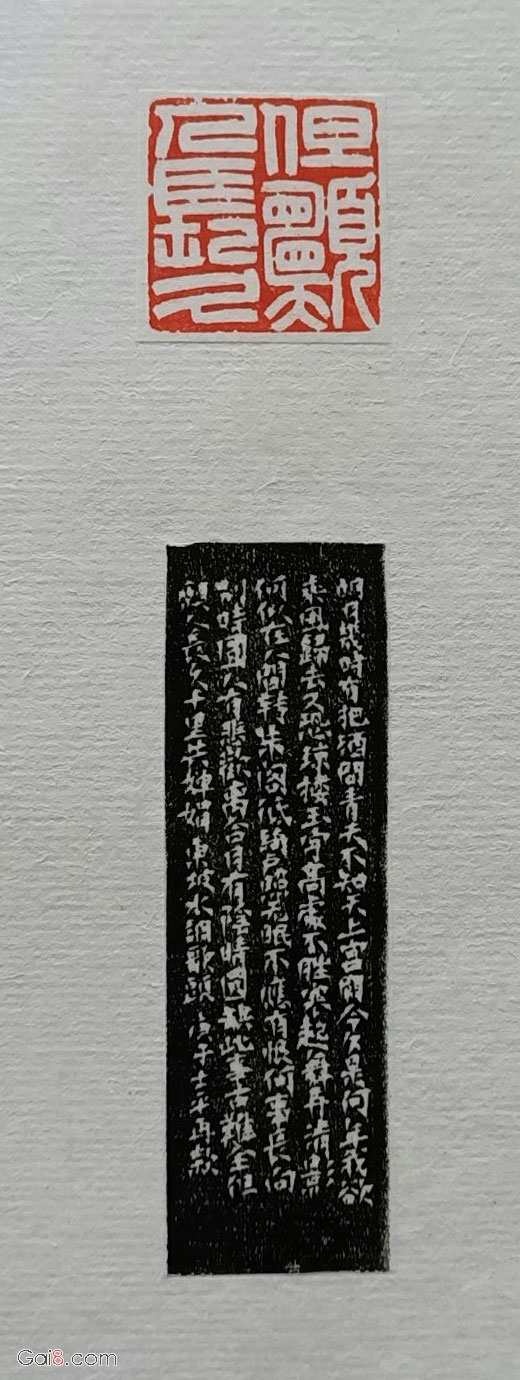 但願
人長久
明月幾時有把酒問青天不知天上宮阙今夕是何年我欲
乘風歸去又恐琼楼玉宇高處不胜寒起舞弄清影
何似在人間转朱阁低绮户照无眠不應有恨何事長向
别時圓人有悲歡离合月有陰晴圓缺此事古難全但
願人長久千里共婵娟東坡水調歌頭庚子士平再款
Gai8.com